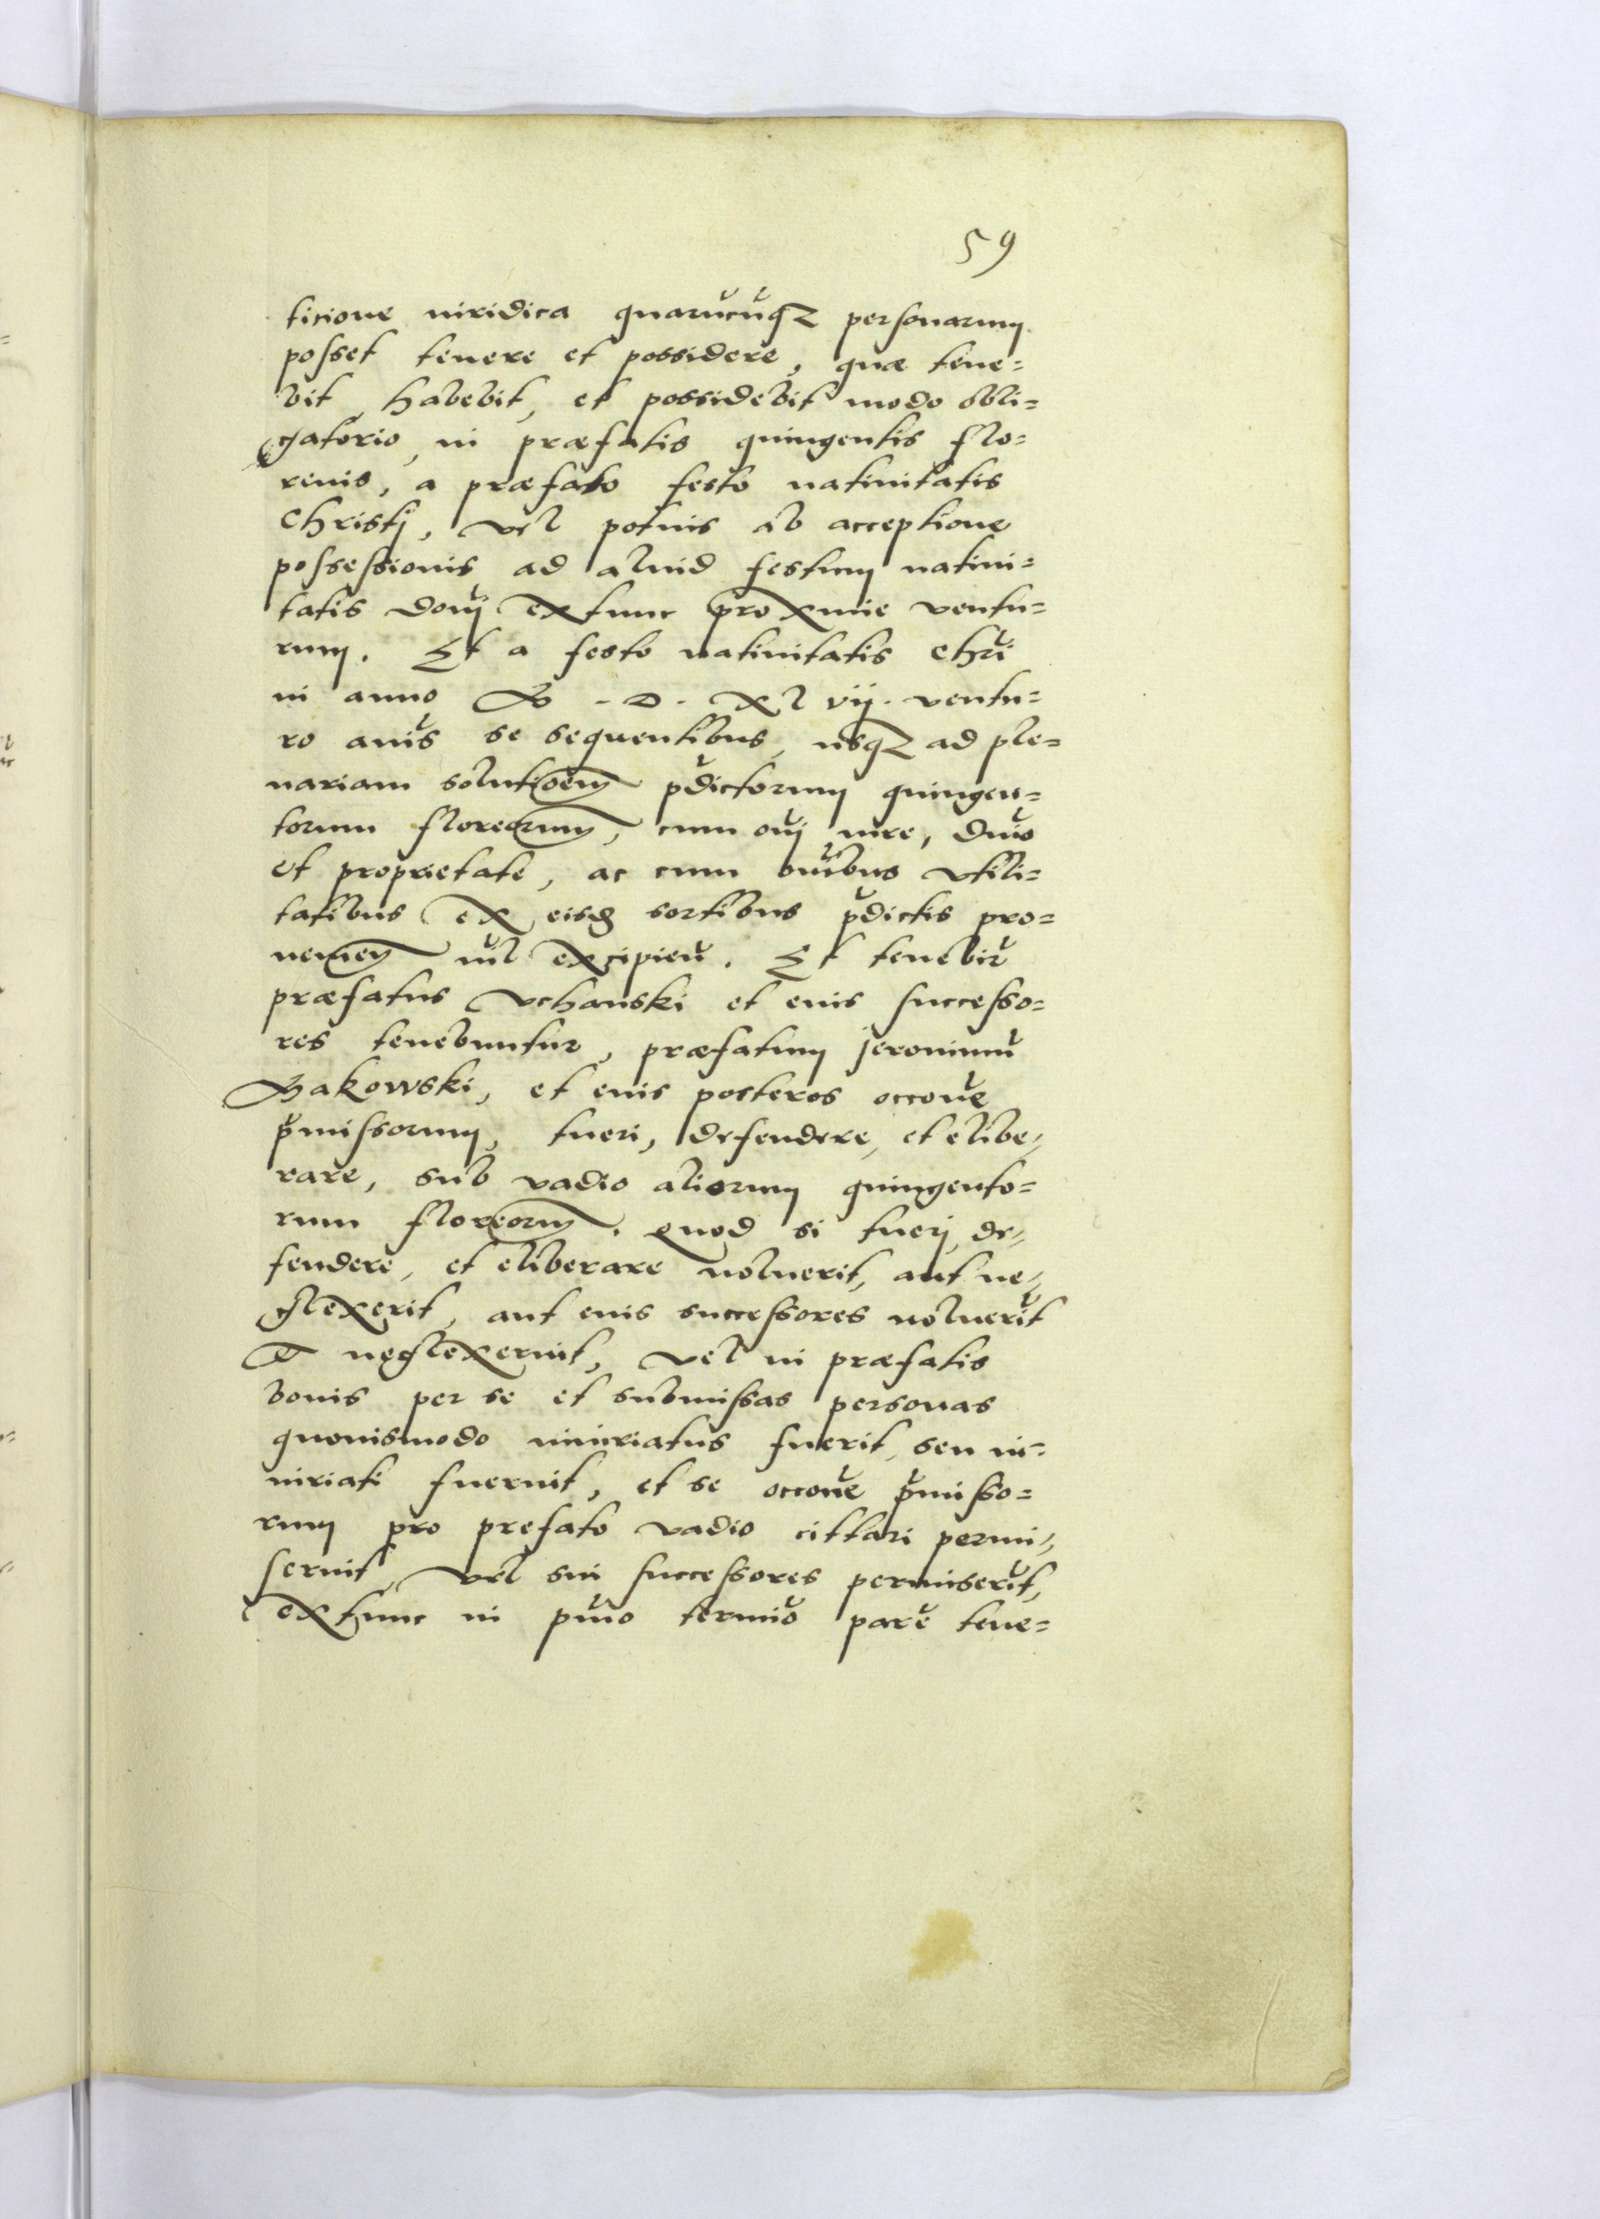 59
ticione iuridica quarūcūqꝫ personarum
posset tenere et possidere, quæ tene=
bit, habebit, et possidebit modo obli=
gatorio, in præfatis quingentis flo=
renis, a præfato festo natiuitatis
Christj, vel potius ab acceptione
possessionis ad aliud festum natiui=
tatis domj extunc proxime ventu=
rum. Et a festo natiuitatis chri
in anno M. D. xl vij. ventu=
ro anis se sequentibus, usqꝫ ad ple=
nariam solutioem pdictorum quingen=
torum floreorum, cum oui iure, dnio
et proprietate, ac cum omibus vtili=
tatibus ex eisd sortibus pdictis pro=
uenien nil excipien. Et tenebir
præfatus Vchanski et eius successo=
res tenebuntur, præfatum jeronimū
Makowski, et eius posteros occone
pmissorum, tueri, defendere, et elibe=
rare, sub vadio aliorum quingento=
rum floreorum. Quod si tuerj, de=
fendere, et eliberare noluerit, aut ne=
glexerit, aut eius successores noluerīt
et neglexerint, vel in præfatis
bonis per se et submissas personas
quouismodo iniuriatus fuerit, seu in=
iuriati fuerint, et se occone pmisso=
rum pro prefato vadio cittari permi=
serint, vel sui successores permiserūt,
extunc in pmo termio pare tene=